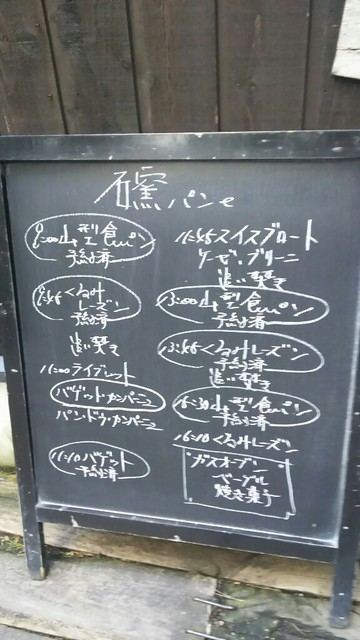 石窯パン
9:00山型食パン
予約済
9:45くるみ
レーズン
予約済
追い焚き
11:00ライブレット
バゲット・カンパーニュ
パン・ドゥ・カンパーニュ
11:10バゲット
予約済
11:45スイスブロート
ケーゼ・ブリーニ
追い焚き
13:00山型食パン
予約済
13:45くるみレーズン
予約済
追い焚き
15:30山型食パン
予約済
16:10くるみレーズン
ガスオーブン
ベーグル
焼き菓子